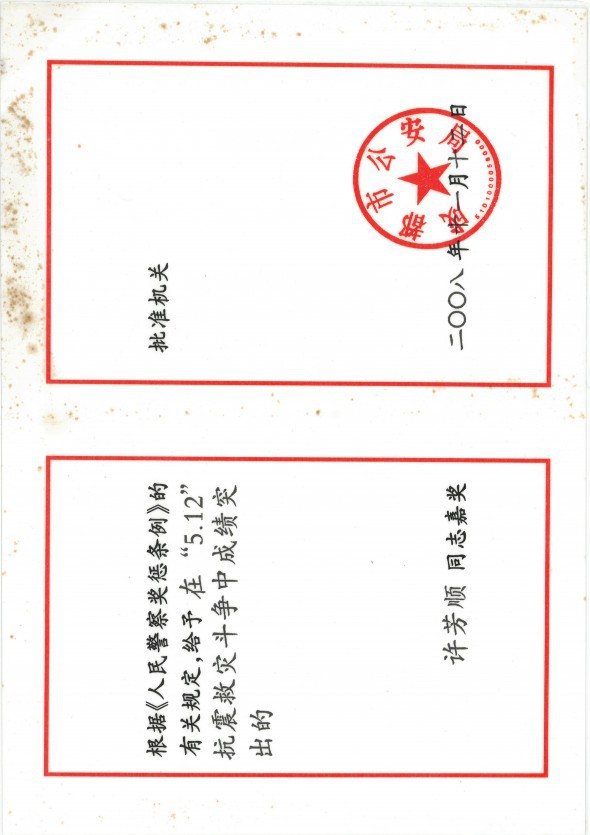 根据《人民警察奖惩条例》的
有关规定,给予 在 “5.12”
抗震救灾斗争中成绩突
出的
许芳顺 同志嘉奖
批准机关
成都市公安局
二〇〇八年十一月十 日